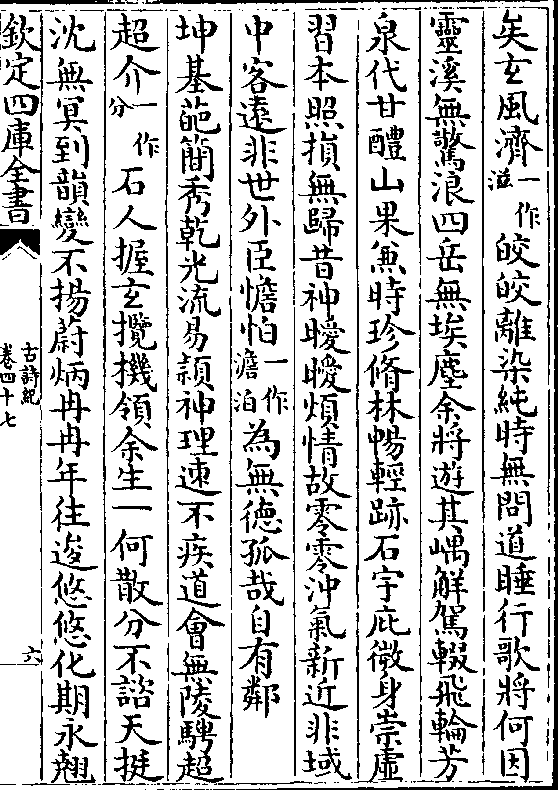 矣玄風濟一作滋皎皎離染純時無問道睡行歌將何因
靈溪無驚浪四岳無埃塵余將遊其嵎觧駕輟飛輪芳
泉代甘醴山果兼時珍脩林暢輕跡石宇庇微身崇虛
習本照損無歸昔神曖曖煩情故零零沖氣新近非域
中客遠非世外臣憺怕一作澹泊為無德孤哉自有鄰
坤基葩簡秀乾光流易頴神理速不疾道會無陵騁超
超介一作分石人握玄攬機領余生一何散分不諮天挺
沈無冥到韻變不揚蔚炳冉冉年往逡悠悠化期永翹
欽定四庫全書
古詩紀
卷四十七
六